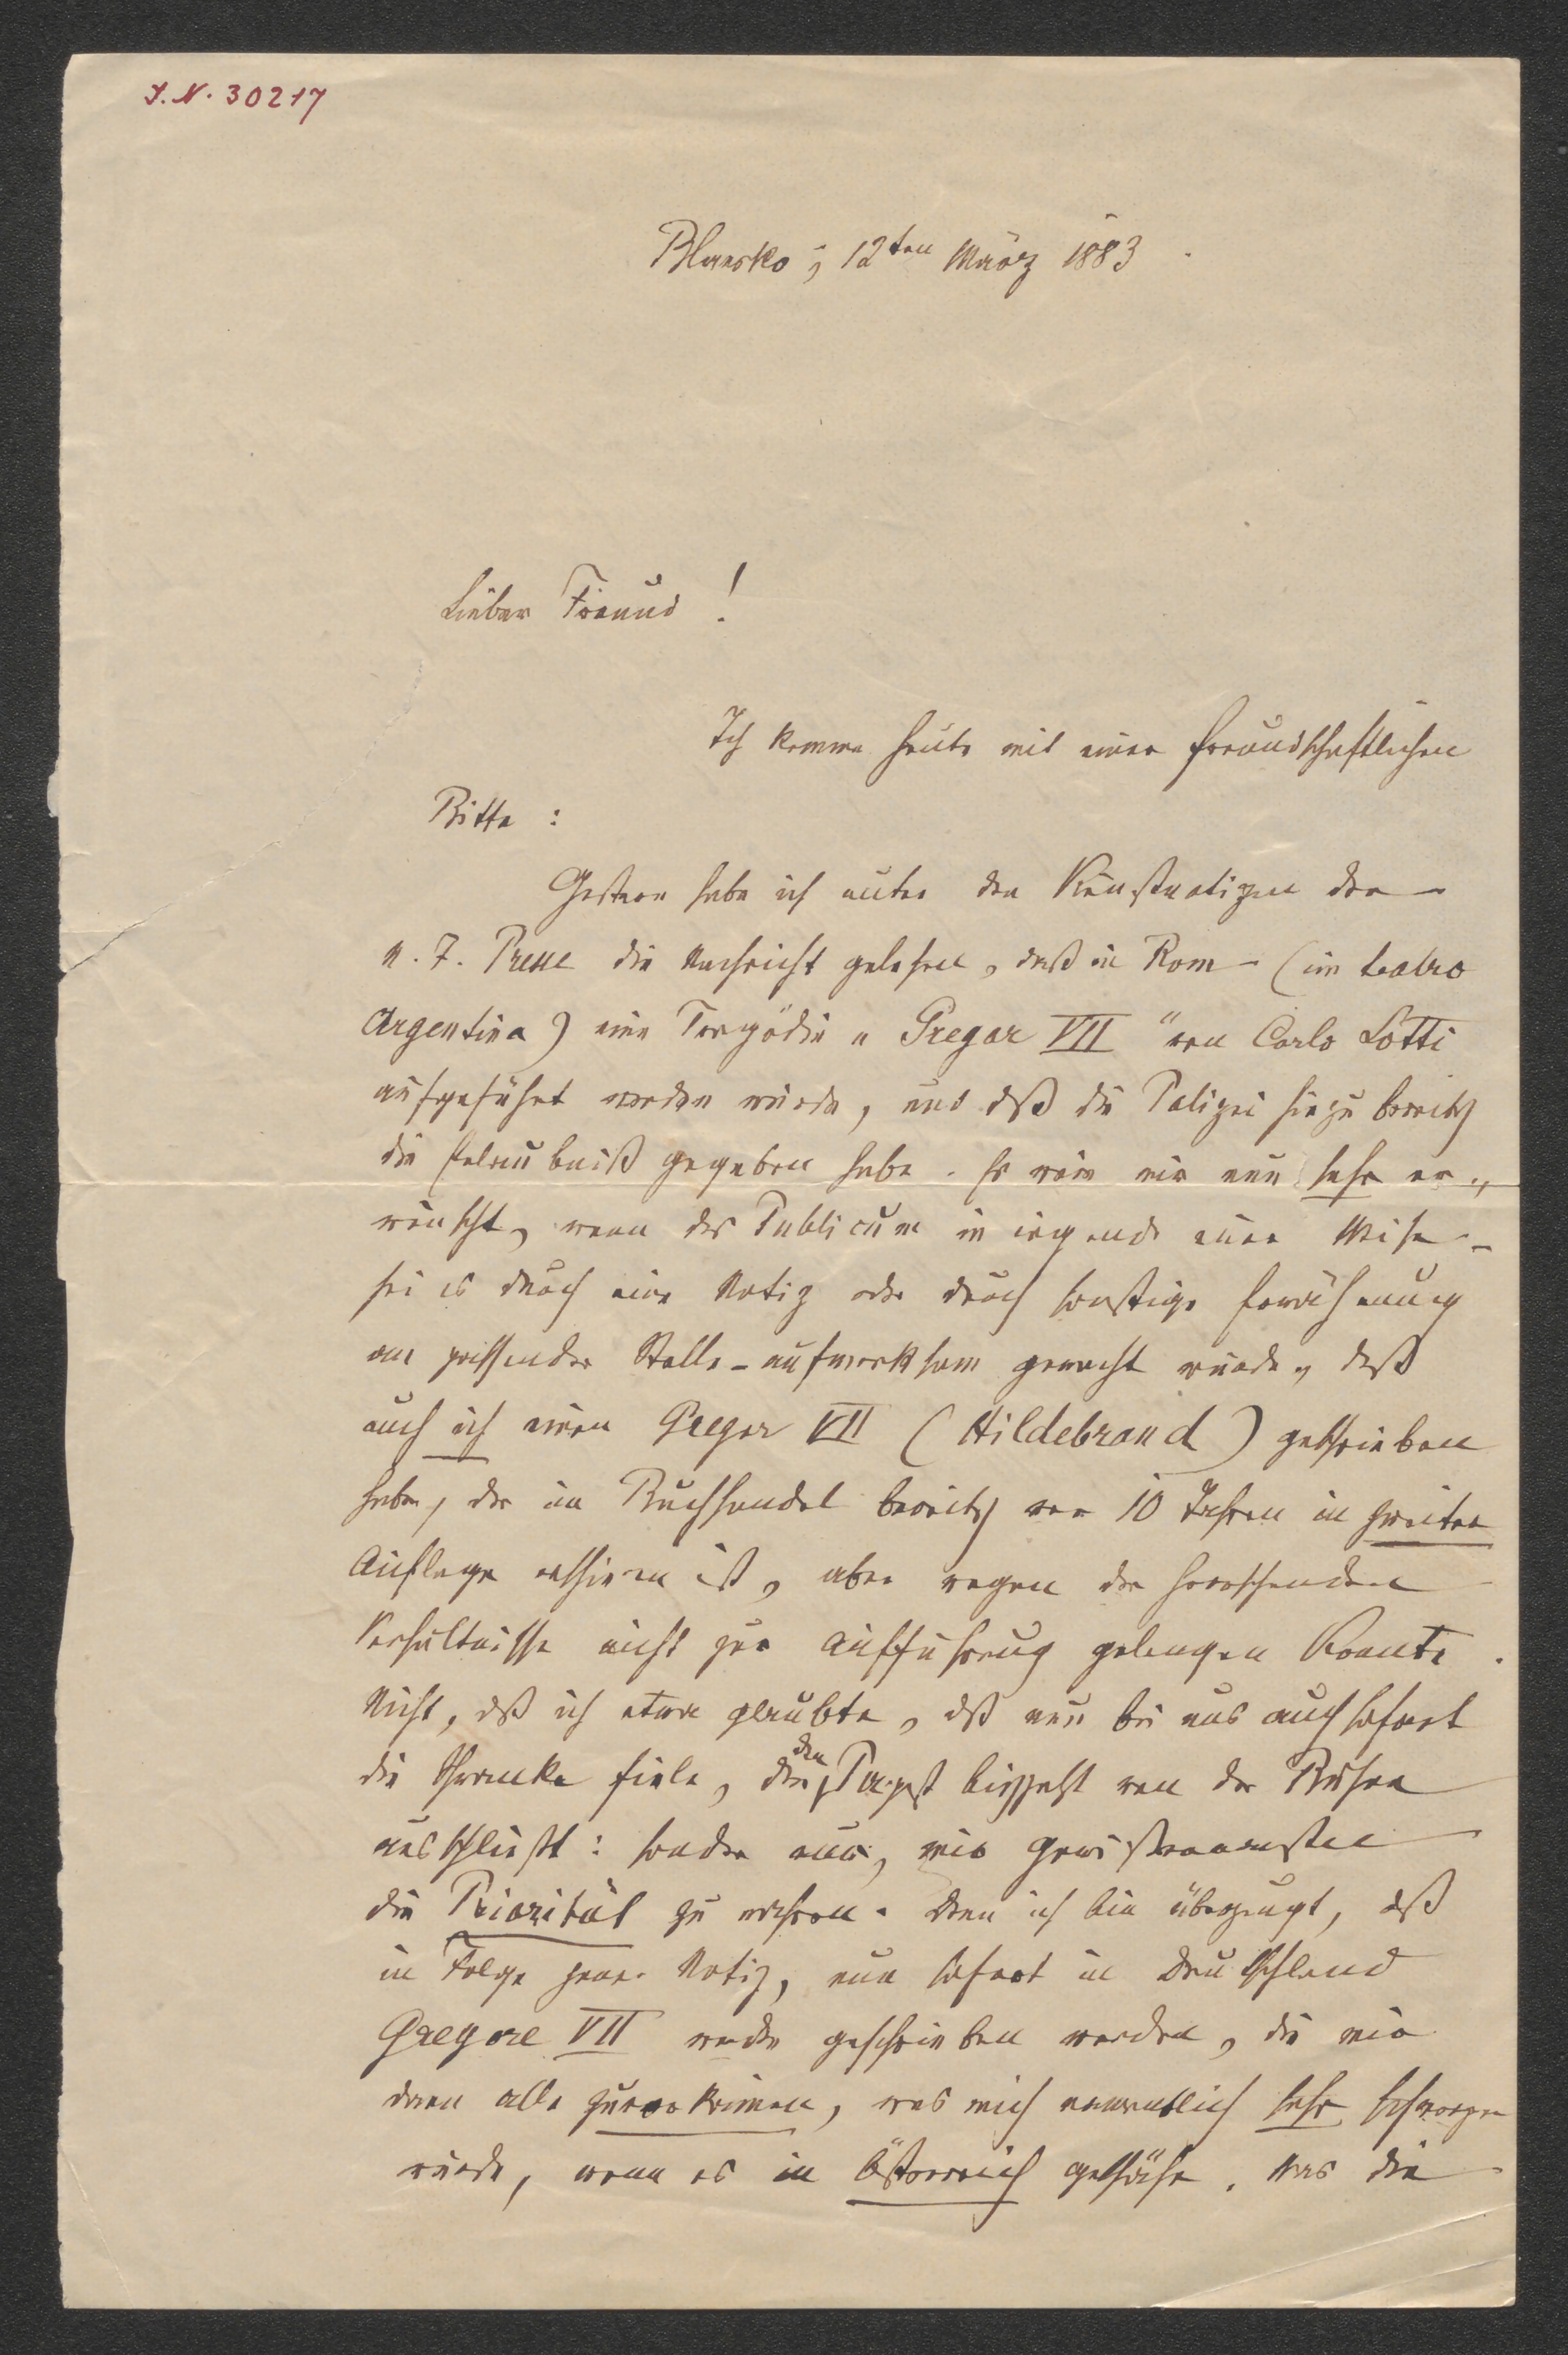 I. N. 30217
Blansko, 12ten März 1883
Lieber Freund!
Ich komme heute mit einer freundschaftlichen
Bitte:
Gestern habe ich unter den Kunstnotizen der
N. F. Presse die Nachricht gelesen, daß in Rom – (im teatro
Argentina) eine Tragödie „Gregor VII“ von Carlo Lotti
aufgeführt werden würde, und daß die Polizei hiezu bereits
die Erlaubniß gegeben habe. Es wäre mir nun sehr er„
wünscht, wenn das Publicum in irgend einer Weise –
sei es durch eine Notiz oder durch sonstige Erwähnung
an passender Stelle – aufmerksam gemacht würde, daß
auch ich einen Gregor VII (Hildebrand) geschrieben
habe, der im Buchhandel bereits vor 10 Jahren in zweiter
Auflage erschienen ist, aber wegen der herrschenden
Verhältnisse nicht zur Aufführung gelangen konnte.
Nicht, daß ich etwa glaubte, daß nun bei uns auch sofort
die Schranke fiele, die den Papst bisjetzt von der Bühne
ausschließt: sondern nur, mir gewissermaßen
die Priorität zu wahren. Denn ich bin überzeugt, daß
in Folge jener Notiz, nun sofort in Deutschland
Gregore VII werden geschrieben werden, die mir
dann alle zuvorkämen, was mich namentlich sehr schmerzen
würde, wenn es in Österreich geschähe. Was die